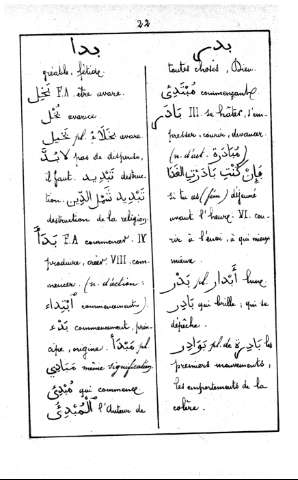 22
بدا
بدر
gréable, fétide.
بَخِيل F.A. être avare.
بُخْل avarice
بَخِيل pl. بُخَلَاءُ avare
لَا بُدَّ pas de dispense,
il faut. تَبْدِيد destruc-
tion. تَبْدِيد شَمْلِ الدِّين
destruction de la religion
بَدَأَ F.A commencer. IV
produire, créer VIII com-
mencer. (n. d'action:
اِبْتِدَاء commencements)
بَدْء commencement, prin-
cipe, origine. مَبْدَأ pl.
مَبَادِئ même signification
مُبْدِئ qui commence
اَلْمُبْدِئ l'Auteur de
toutes choses, Dieu.
مُبْتَدِئ commençant
بَادَرَ III. se hâter, s'em-
presser, courir, devancer
(n. d'act. مُبَادَرَة)
فَإِنْ كُنْتِ بَادَرْتِ الغَدَا
si tu as (fém) déjeuné
avant l'heure. VI. cou-
rir à l'envi, à qui mieux
mieux.
بَدْر pl. أَبْدَار lune
بَادِر qui brille; qui se
dépêche.
بَوَادِر pl. de بَادِرَة les
premiers mouvements,
les emportements de la
colère.